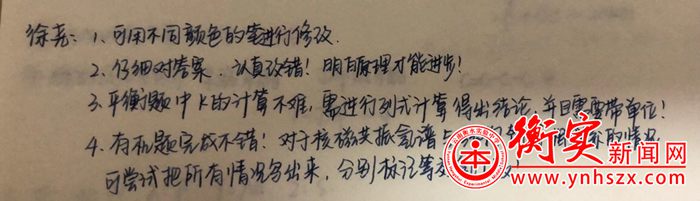 徐尧：1、可用不同颜色的笔进行修改.
2、仔细对答案，认真改错！明白原理才能进步！
3、平衡题中K的计算不难，需进行列式计算得出结论，并且需要带单位！
4、有机题完成不错！对于核磁共振氢谱与
可尝试把所有情况写出来，分别标记等
衡实新闻网
www.ynhszx.com